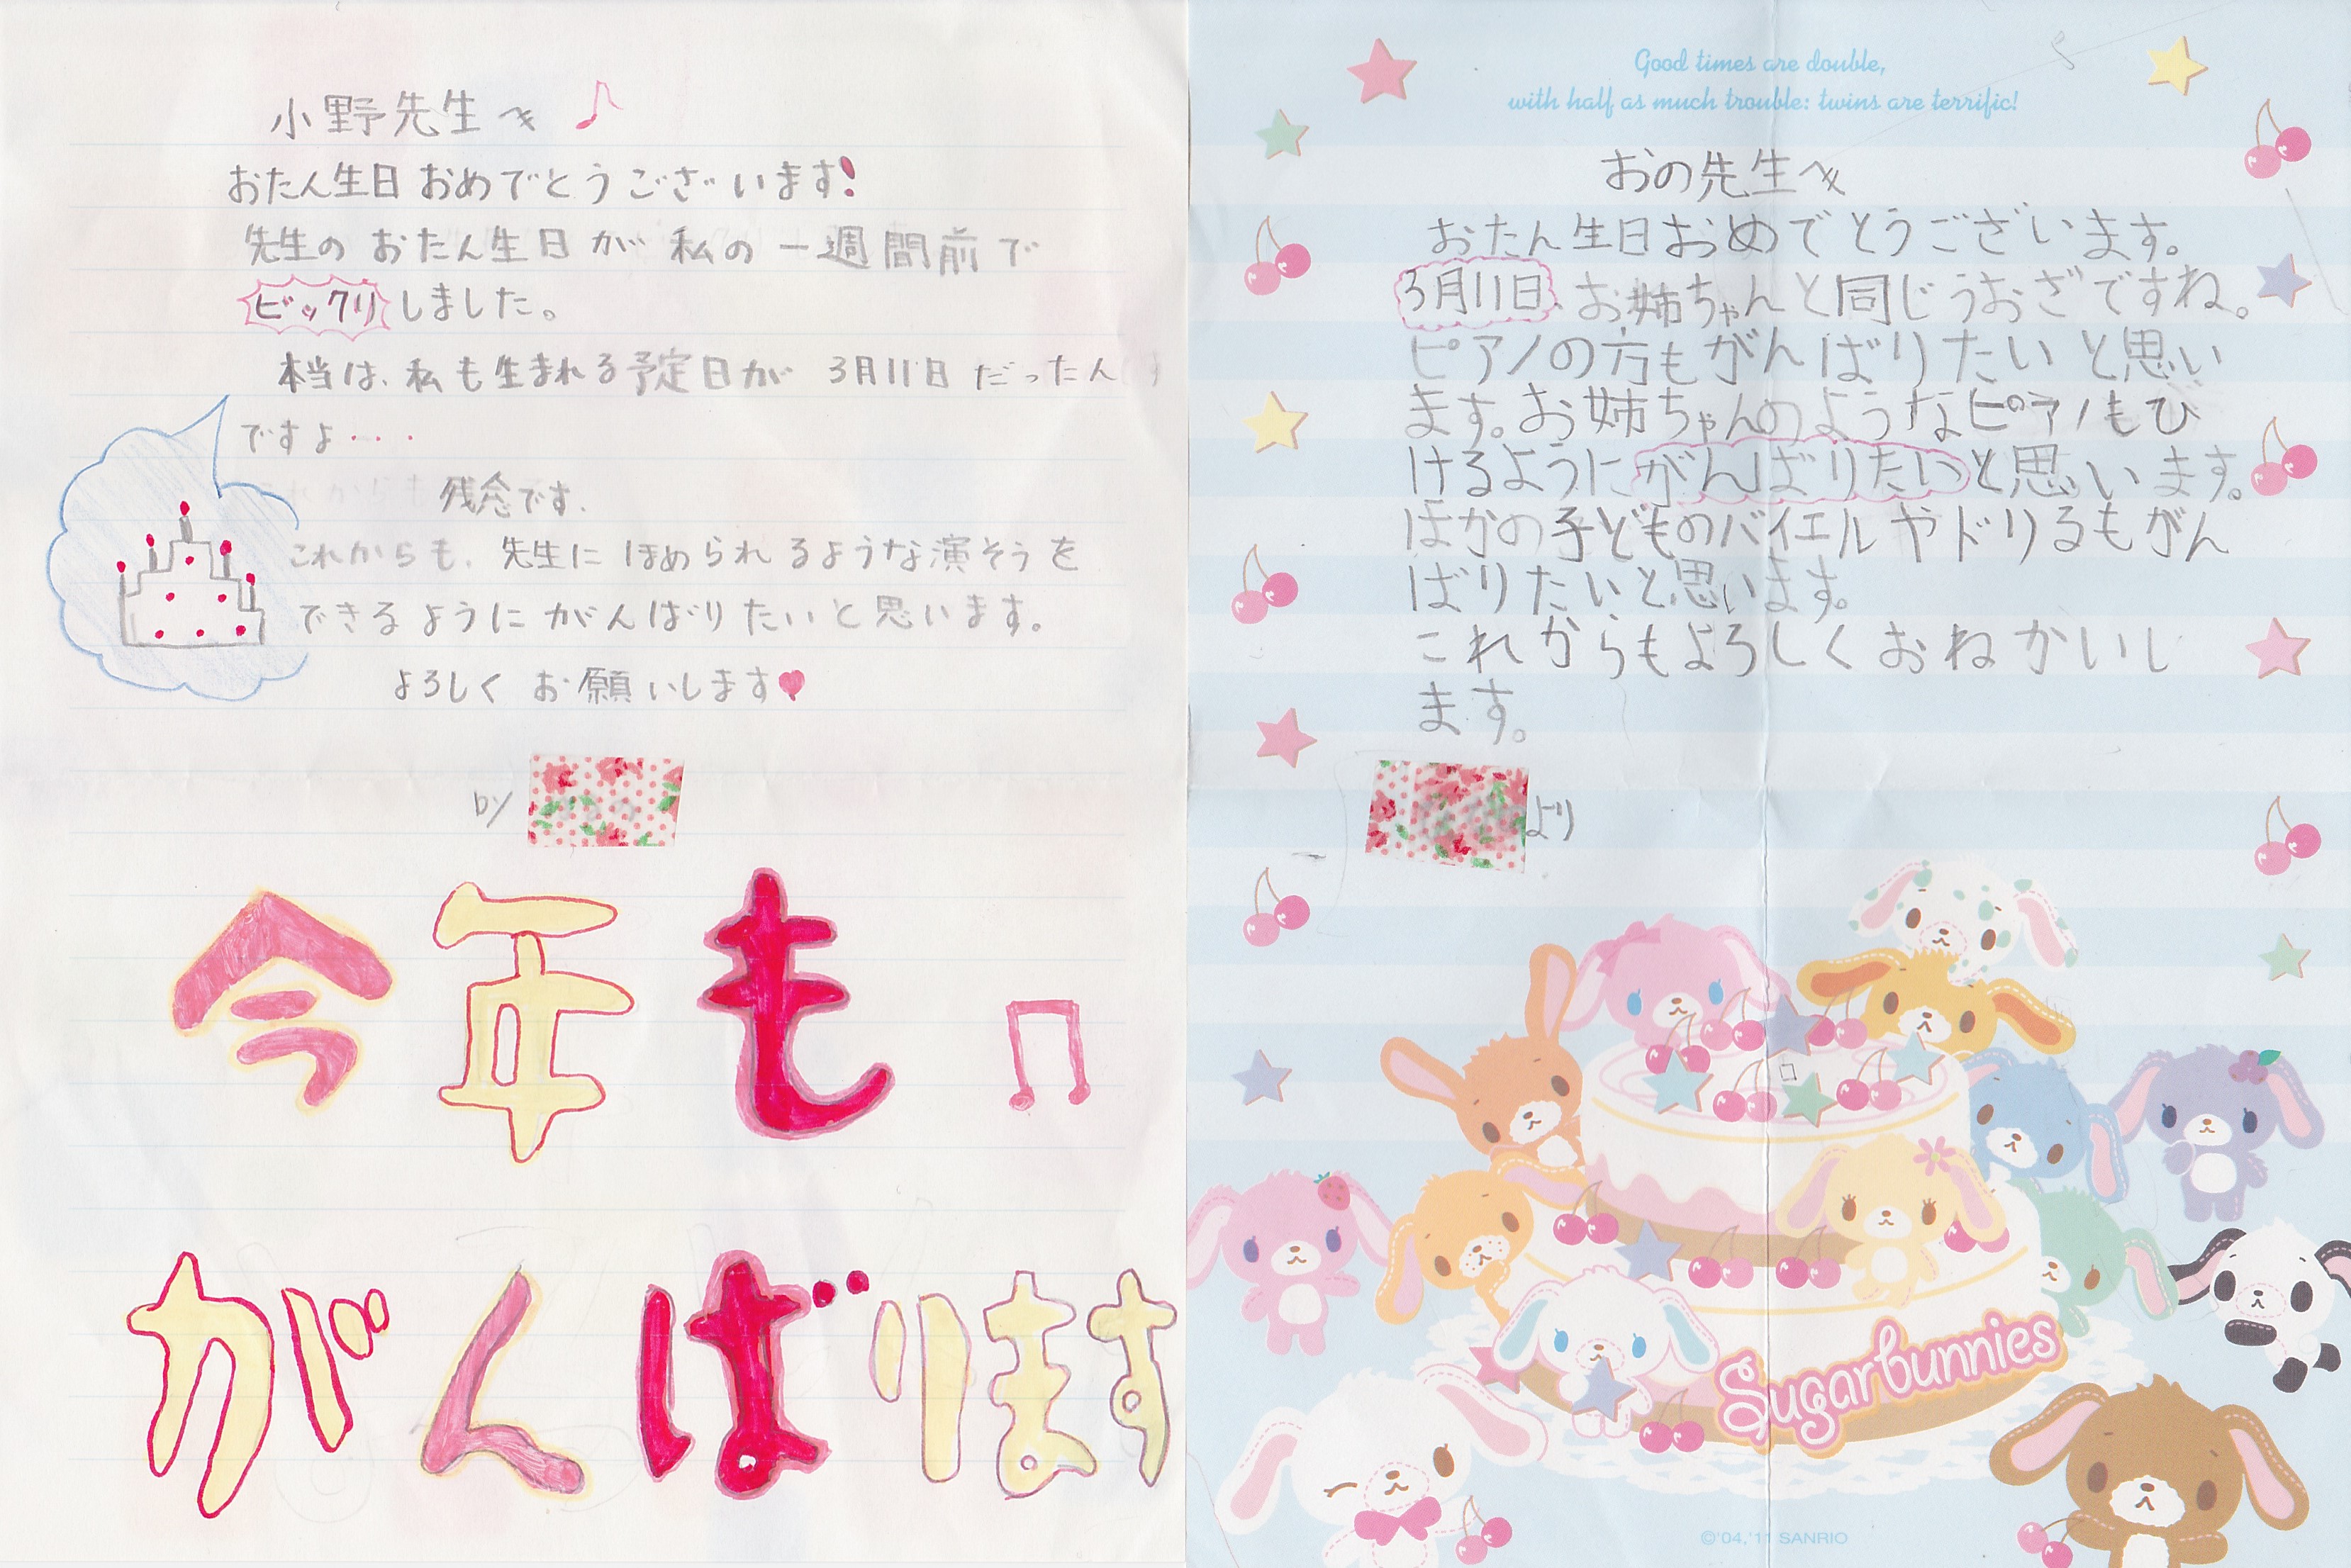 小野先生へ
おたん生日おめでとうございます!
先生のおたん生日が私の一週間前で
ビックリしました。
本当は、私も生まれる予定日が3月11日だったん
ですよ・・・
残念です.
これからも、先生にほめられるような演そうを
できるようにがんばりたいと思います。
よろしくお願いします
by
今年も
がんばります
Good times are double,
with half as much trouble: twins are terrific!
おの先生へ
おたん生日おめでとうございます。
3月11日、お姉ちゃんと同じうおざですね。
ピアノの方もがんばりたいと思い
ます。お姉ちゃんのようなピアノもひ
けるようにがんばりたいと思います。
ほかの子どものバイエルやドリるもがん
ばりたいと思います。
これからもよろしくおねかいし
ます。
より
Sugarbunnies
©'04,'11 SANRIO